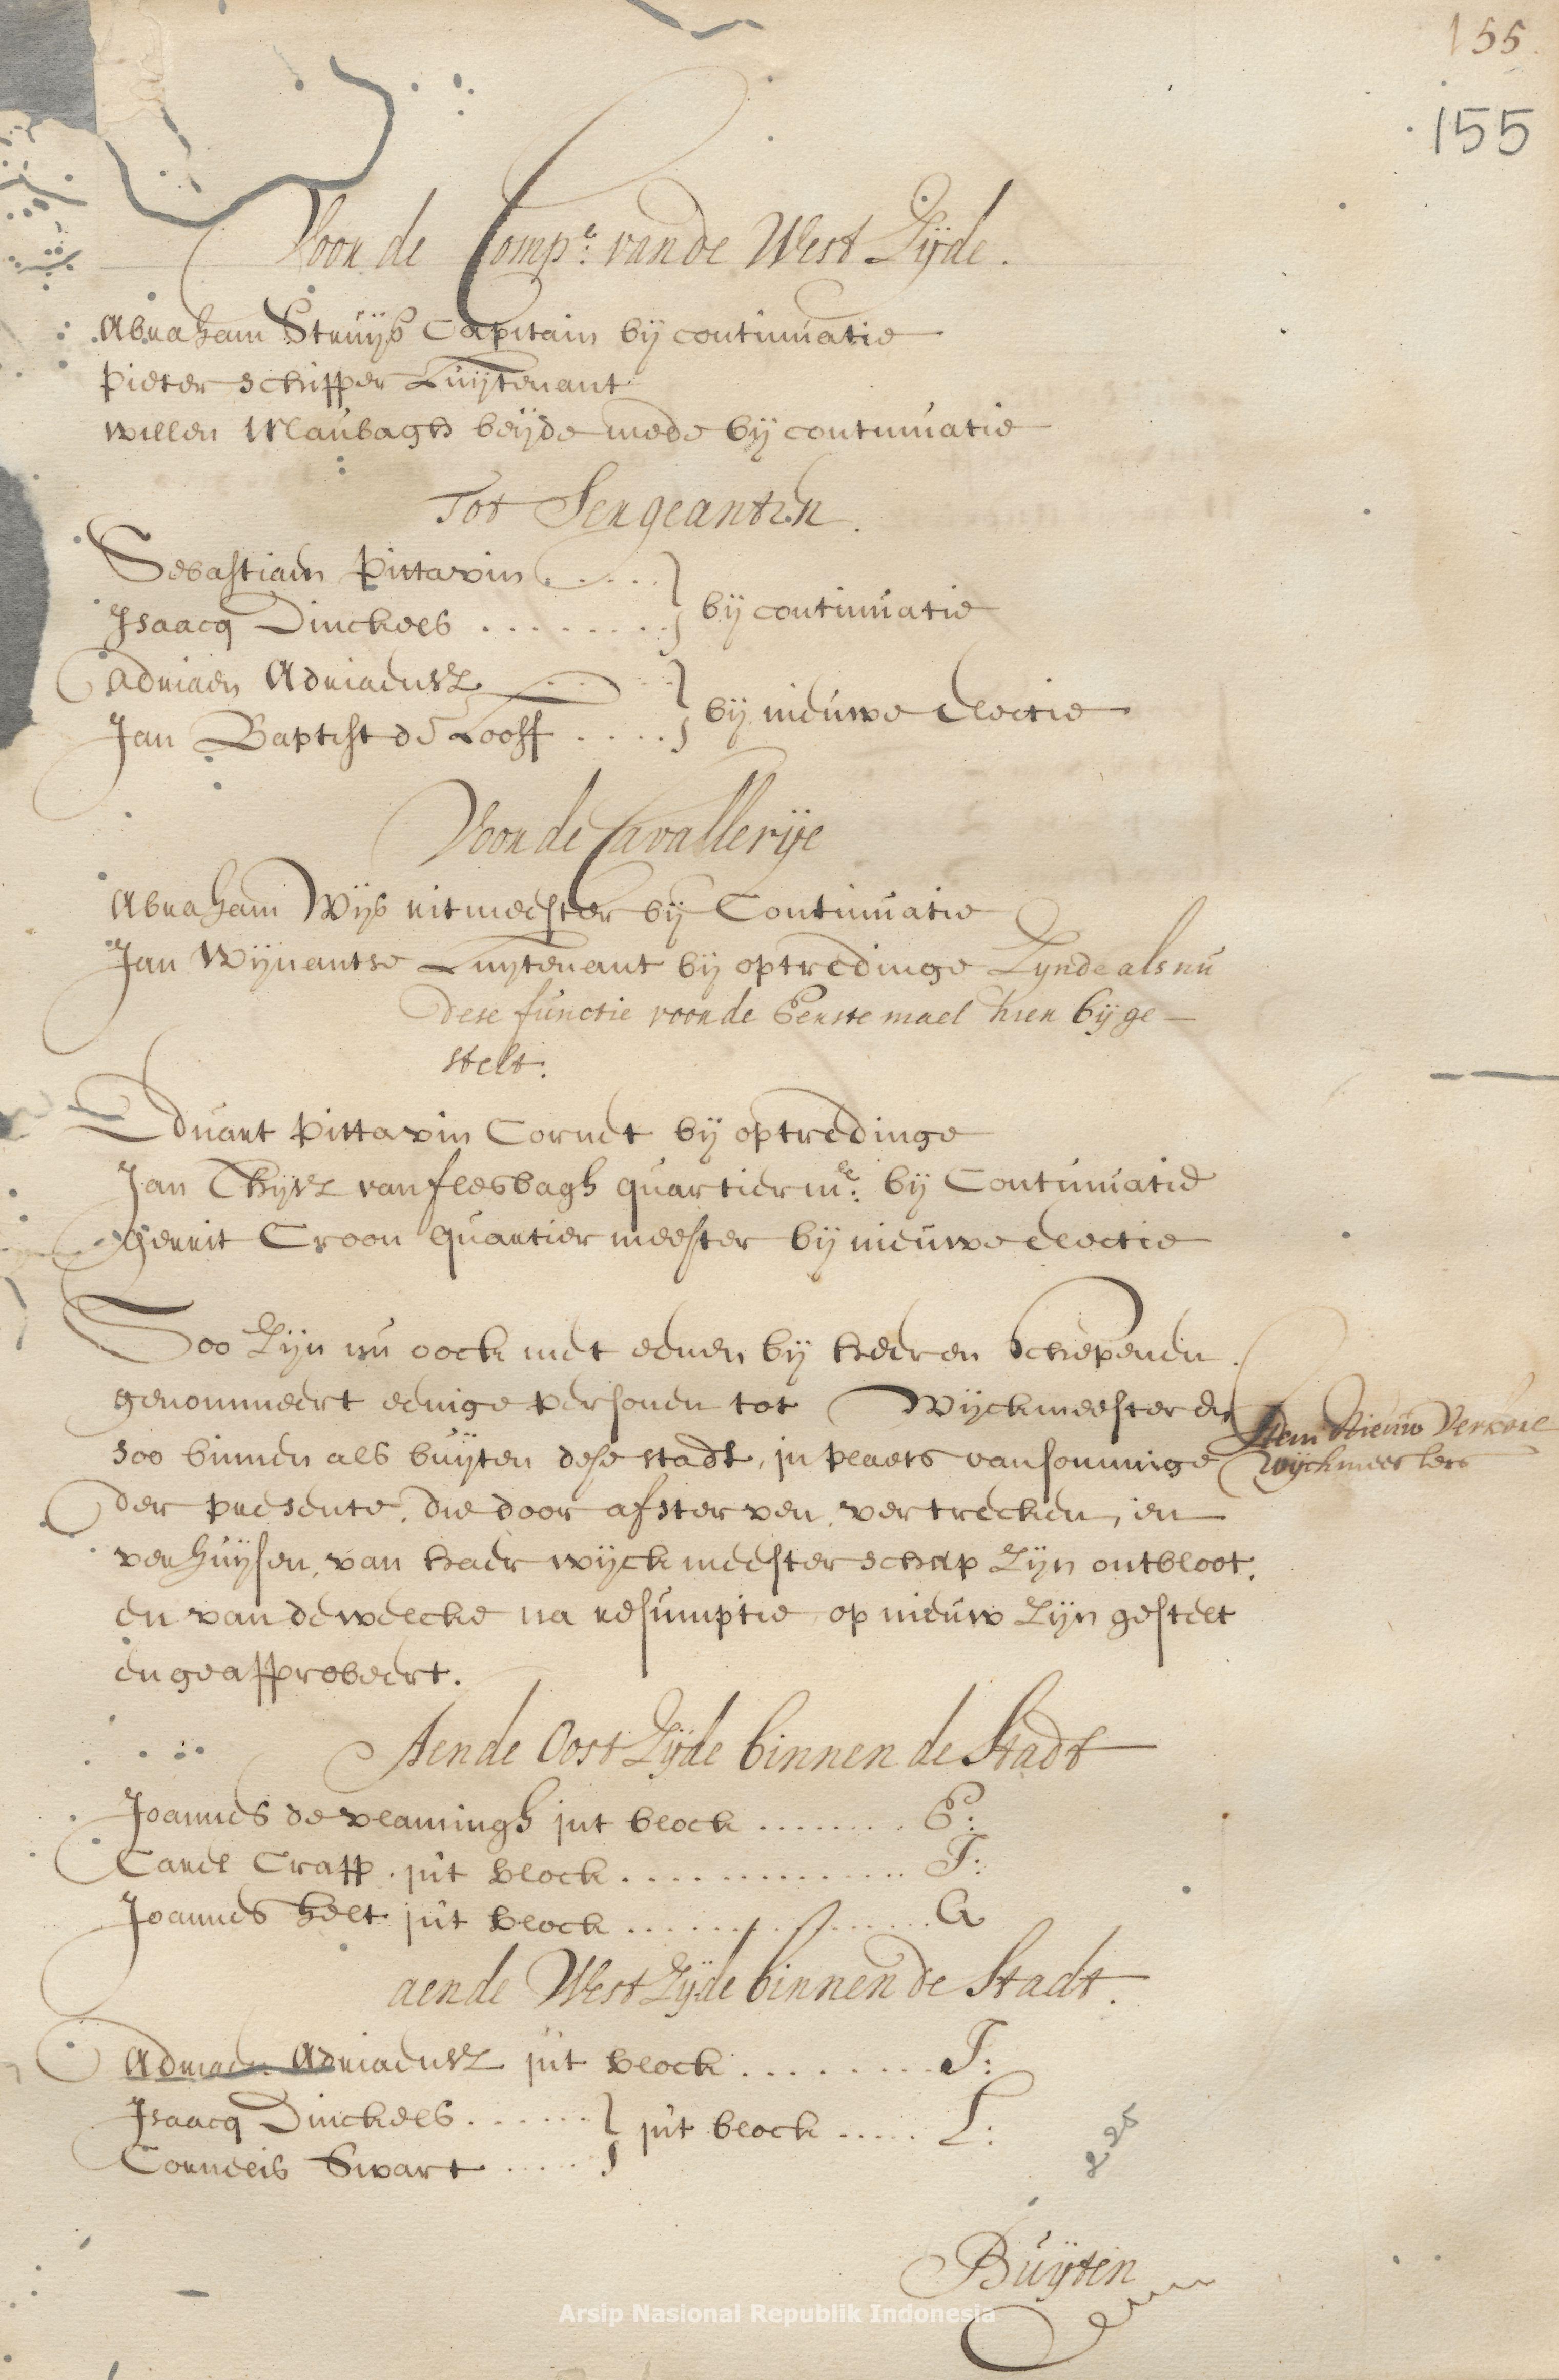 155
155
Voor de Compe: vande West Zijde.
Abraham Struijs Capitain bij continuatie
Pieter Schipper Luijtenant
Willem Maubagh beijde mede bij continuatie
Tot Sergeanten.
Sebastiaen Pittavin .....
Isaacq Dinckels ........ } bij continuatie
Adriaen Adriaensz
Jan Baptist de Looff ..... } bij nieuwe electie
Voor de Cavallerije
Abraham Wijs ritmeester bij Continuatie
Jan Wijnantse Luijtenant bij optredinge Zynde als nu
dese functie voor de Eerste mael hier bij ge-
stelt.
Eduart Pittavin Cornet bij optredinge
Jan Thijsz van flesbagh quartierme: bij Continuatie
Gerrit Croon quartiermeester bij nieuwe electie
Soo Zijn nu oock met eenen bij heeren Schepenen
genommeert eenige personen tot Wijckmeesteren
soo binnen als buijten dese stadt, in plaets van sommige
der presente, die door afsterven, vertrecken, en
verhuijsen, van haer wijckmeesterschap Zijn ontbloot.
en van dewelcke na resumptie, op nieuw Zijn gestelt
en geapprobeert.
Item Nieuw Verkore
Wijckmeesters
Aende Oost Zijde binnen de Stadt
Joannes de Vlamingh int block ........ E:
Carel Craff. int block .............. F:
Joannes Helt int block .............. G
aende West Zijde binnen de Stadt.
Adriaen Adriaensz int block ......... F:
Isaacq Dinckels ......
Cornelis Swart ..... } int block ..... L:
Buijten
Arsip Nasional Republik Indonesia